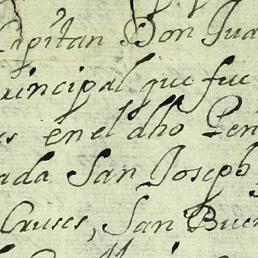 Capitan Don Jua
rincipal que fue
es en el dho Pen
ada San Joseph
Cruses, San Buen